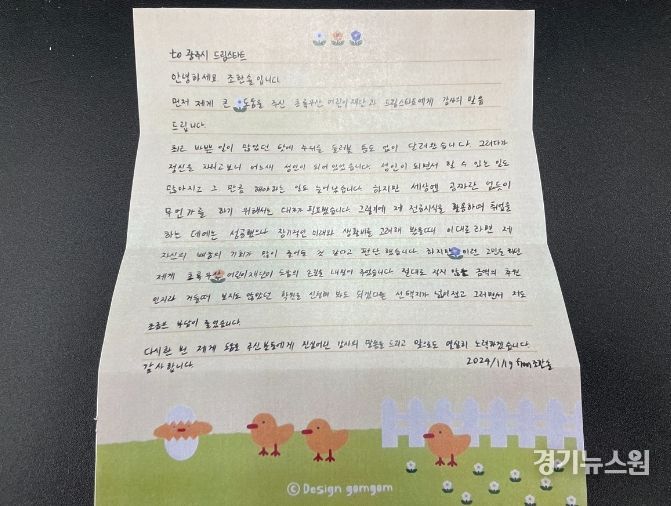 to 광주시 드림스타트
안녕하세요 조한솔입니다.
먼저 제게 큰 도움을 주신 초록우산 어린이재단과 드림스타트에게 감사의 말씀
드립니다.
최근 바쁜 일이 많았던 탓에 주위를 둘러볼 틈도 없이 달려왔습니다. 그러다가
정신을 차리고보니 어느새 성인이 되어 있었습니다. 성인이 되면서 할 수 있는 일도
많아지고 그 만큼 해야하는 일도 늘어났습니다. 하지만 세상엔 공짜란 없듯이
무언가를 하기 위해서는 대가가 필요했습니다. 그렇기에 제 전공지식을 활용하여 취업을
하는 데에는 성공했으나 장기적인 미래와 생활비를 고려해 봤을때 이대로라면 제
자신의 배움의 기회가 많이 줄어들 것 같다고 판단했습니다. 하지만 이런 고민을 하던
제게 초록우산 어린이재단이 도움의 손길을 내밀어 주었습니다. 절대로 작지 않은 금액의 후원
인지라 거들떠 보지도 않았던 학원도 신청해 봐도 되겠다는 선택지가 넓어졌고 그러면서 저도
조금은 부담이 줄었습니다.
다시한 번 제게 도움을 주신분들에게 진심어린 감사의 말씀을 드리고 앞으로도 열심히 노력하겠습니다.
감사합니다. 2024/1/19 from조한솔
ⓒ Design gomgom
경기뉴스원